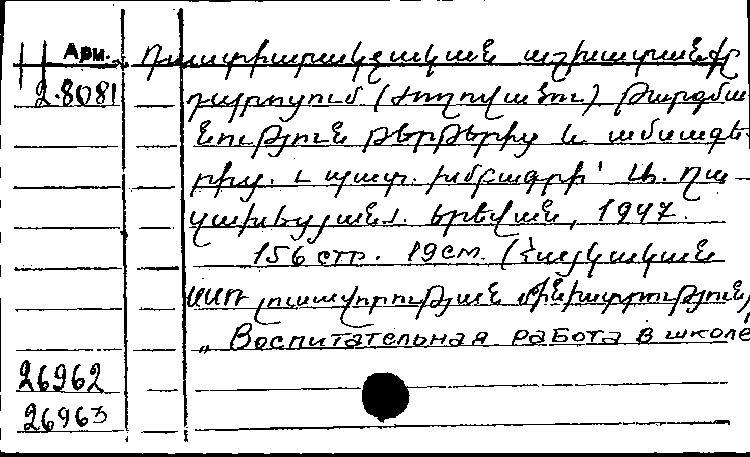 Արմ. Դաստիարակչական աշխատանքը
2.8081 դպրոցում (Ժողովածու) Թարգմա
նություն թերթերից և ամսագե-
րից. պատ. խմբագրի՝
Երևան, 1947.
156 стр. 19см. (Հայկական
ՍՍՌ լուսավորության մինիստրություն)
„ Воспитательная работа в школе
26962
26963